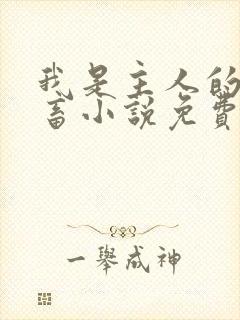 我是主人的
畜小說免費
一舉成神